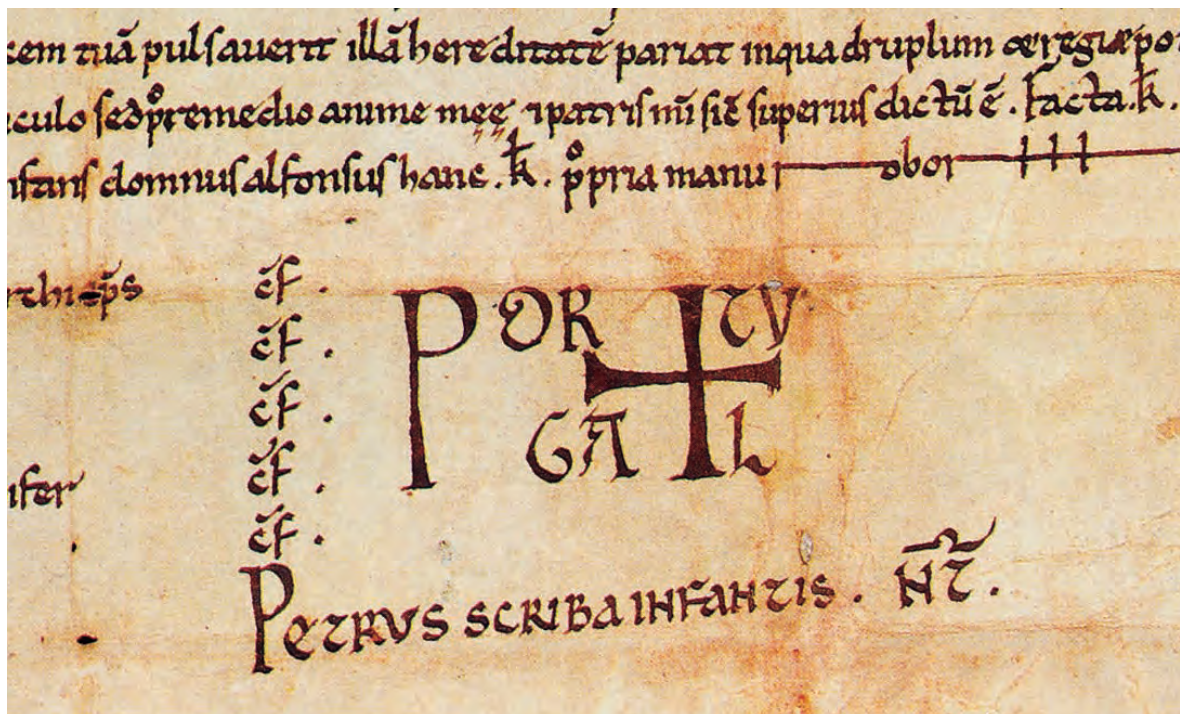 cem tuā pulsauerit illā hereditatē pariat inquadruplum et regiæ pot
culo sed ꝓremedio anime meę ⁊patris mī sić superius dictū ē. Facta.k̄.
nfans domnus alfonsus hanc.k̄. ꝓpria manu r obor
thiep̄s
c̄f.
c̄f.
c̄f.
c̄f.
ifer
c̄f.
PORTU
GAL
PETRUS SCRIBA INFANTIS. N̄T̄.